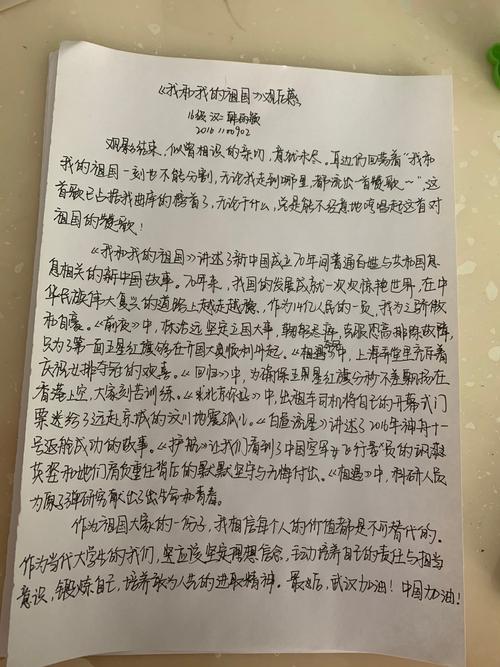 《我和我的祖国》观后感
16级 汉二 韩雨
观影结束，似曾相识的亲切，意犹未尽。耳边仍回荡着“我和
我的祖国一刻也不能分割，无论我走到哪里，都流出一首赞歌~”，这
首歌已占据我曲库的榜首了，无论干什么，总是能不经意地哼唱起这首对
祖国的赞歌！
《我和我的祖国》讲述了新中国成立70年间普通百姓与共和国息
息相关的新中国故事。70年来，我国的发展成就一次次惊艳世界，在中
华民族伟大复兴的道路上越走越稳，作为14亿人民的一员，我为之骄傲
和自豪。《前夜》中，林治远坚定立国大事，克服恐高排除故障，
只为了第一面五星红旗能在开国大典顺利升起。《夺冠》中，上海弄堂里充斥着
庆祝女排夺冠的欢喜。《回归》中，为确保五星红旗分秒不差飘扬在
香港上空，大家刻苦训练。《北京你好》中，出租车司机将自己的开幕式门
票送给了远赴京城的汶川地震孤儿。《白昼流星》讲述了2016年神舟十一
号返航成功的故事。《护航》让我们看到了中国空军女飞行员的飒爽
英姿和她们肩负重任背后的默默坚守与无悔付出。《相遇》中，科研人员
为原子弹研究献出了生命和青春。
作为祖国大家的一份子，我相信每个人的价值都是不可替代的。
作为当代大学生的我们，更应该坚定理想信念，主动培养自己的责任与担当
意识，锻炼自己，培养敢为人先的进取精神。最后，武汉加油！中国加油！